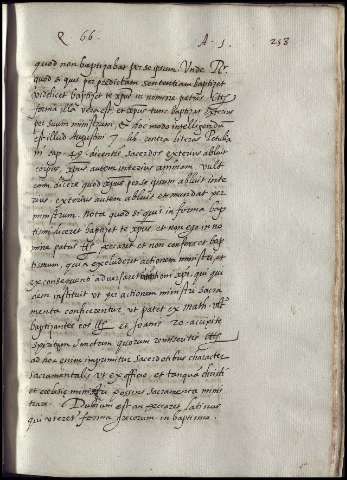 Q. 66. A. 5. 258
quod non baptizabat per se ipsum. Unde Rᵒ.
quod si quis per predictam sententiam baptizet
videlicet baptizet te xpus in nomine patris
forma illa vera est. et xpus tunc baptizat exterius
per suum ministrum, & hoc modo intelligenda
est illud Augustini lib. contra literas Petilia
ni cap. 49. dicentis sacerdos exterius abluit
corpus, xpus autem interius animam. vult
enim dicere quod xpus per se ipsum abluit inte
rius. exterius autem abluit et mundat per
ministrum. Nota quod si quis in forma bap
tismi diceret baptizet te xpus et non ego in no
mine patris peccaret et non conferret bap
tismum, quia excluderet actionem ministri, et
ex consequenti adversaret institutioni xpi, qui qui
dem instituit ut per actionem ministri sacra
menta conficerentur. ut patet ex Math.
baptizantes eos et Joanis 20. accipite
spiritum sanctum quorum remiseritis
ad hoc enim imprimitur sacerdotibus character
sacramentalis, ut ex officio, et tanquam christi
et ecclesie ministri possint sacramenta minis
trare. Dubium est an peccaret latinus
qui uteret forma grecorum in baptismo.